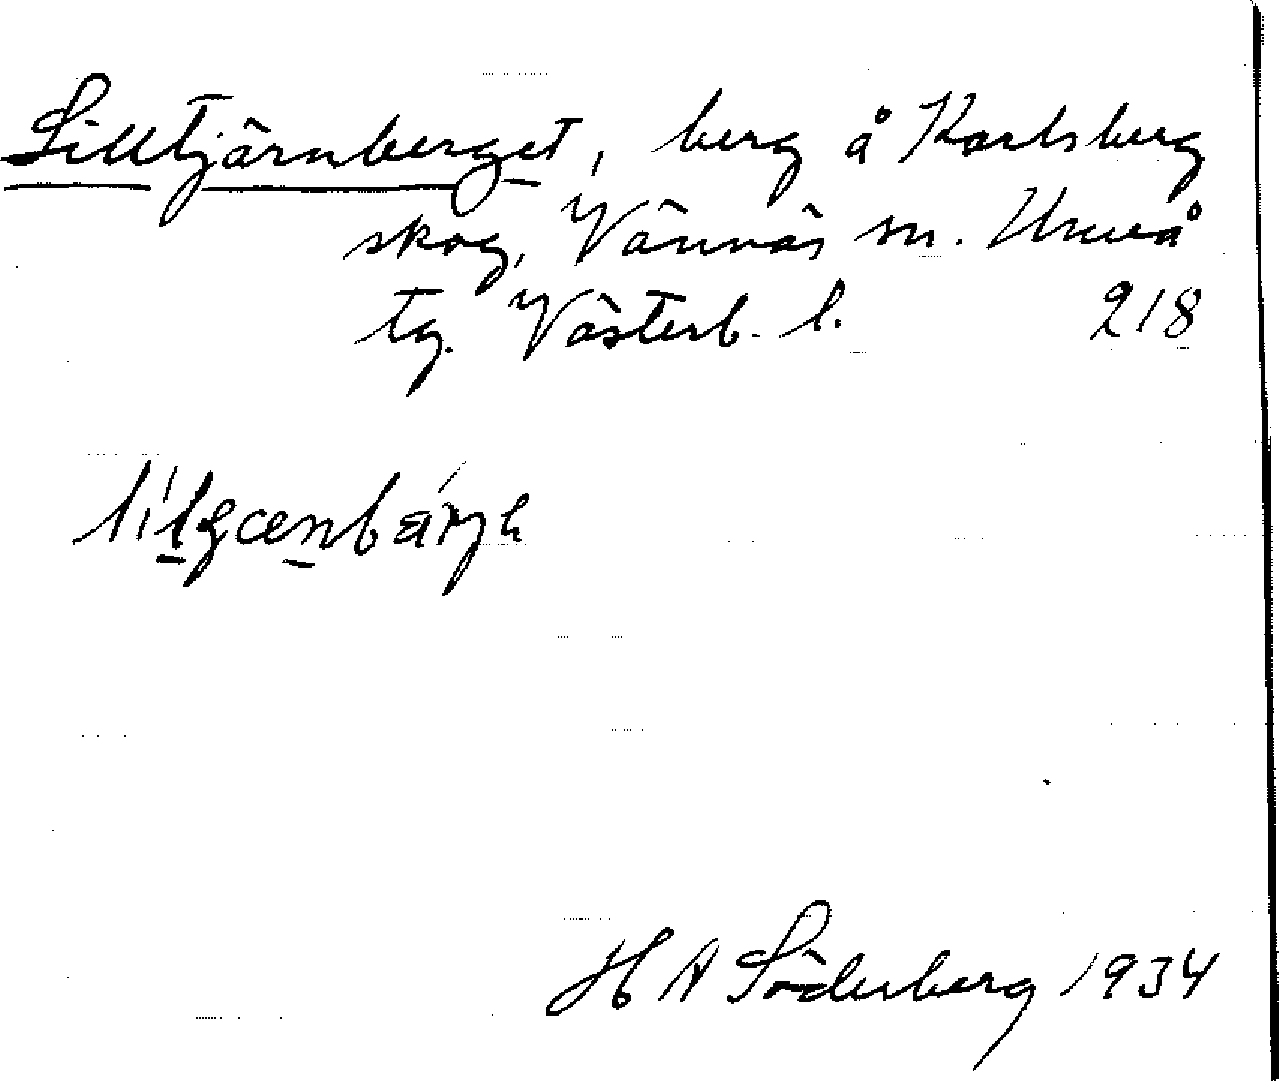 Lilltjärnberget, berg å Karlsberg
skog, Vännäs sn. Umeå
tg. Västerb. l. 218
H A Söderberg 1934